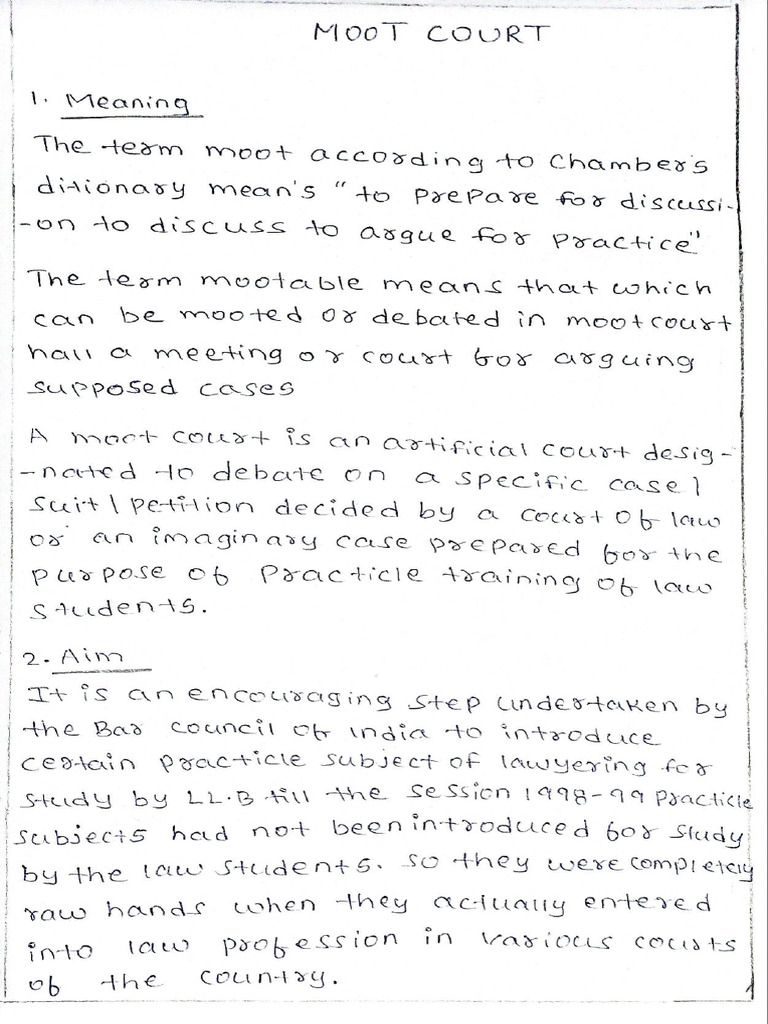 MOOT COURT
1. Meaning
The term moot according to Chamber's
ditionary mean's "to prepare for discussi-
-on to discuss to argue for practice"
The term mootable means that which
can be mooted or debated in mootcourt
hall a meeting or court for arguing
supposed cases
A moot court is an artificial court desig-
-nated to debate on a specific case/
suit/petition decided by a court of law
or an imaginary case prepared for the
purpose of practicle training of law
students.
2. Aim
It is an encouraging step undertaken by
the Bar council of india to introduce
certain practicle subject of lawyering for
study by LL.B till the session 1998-99 practicle
subjects had not been introduced for study
by the law students. so they were completely
raw hands when they actually entered
into law profession in various courts
of the country.